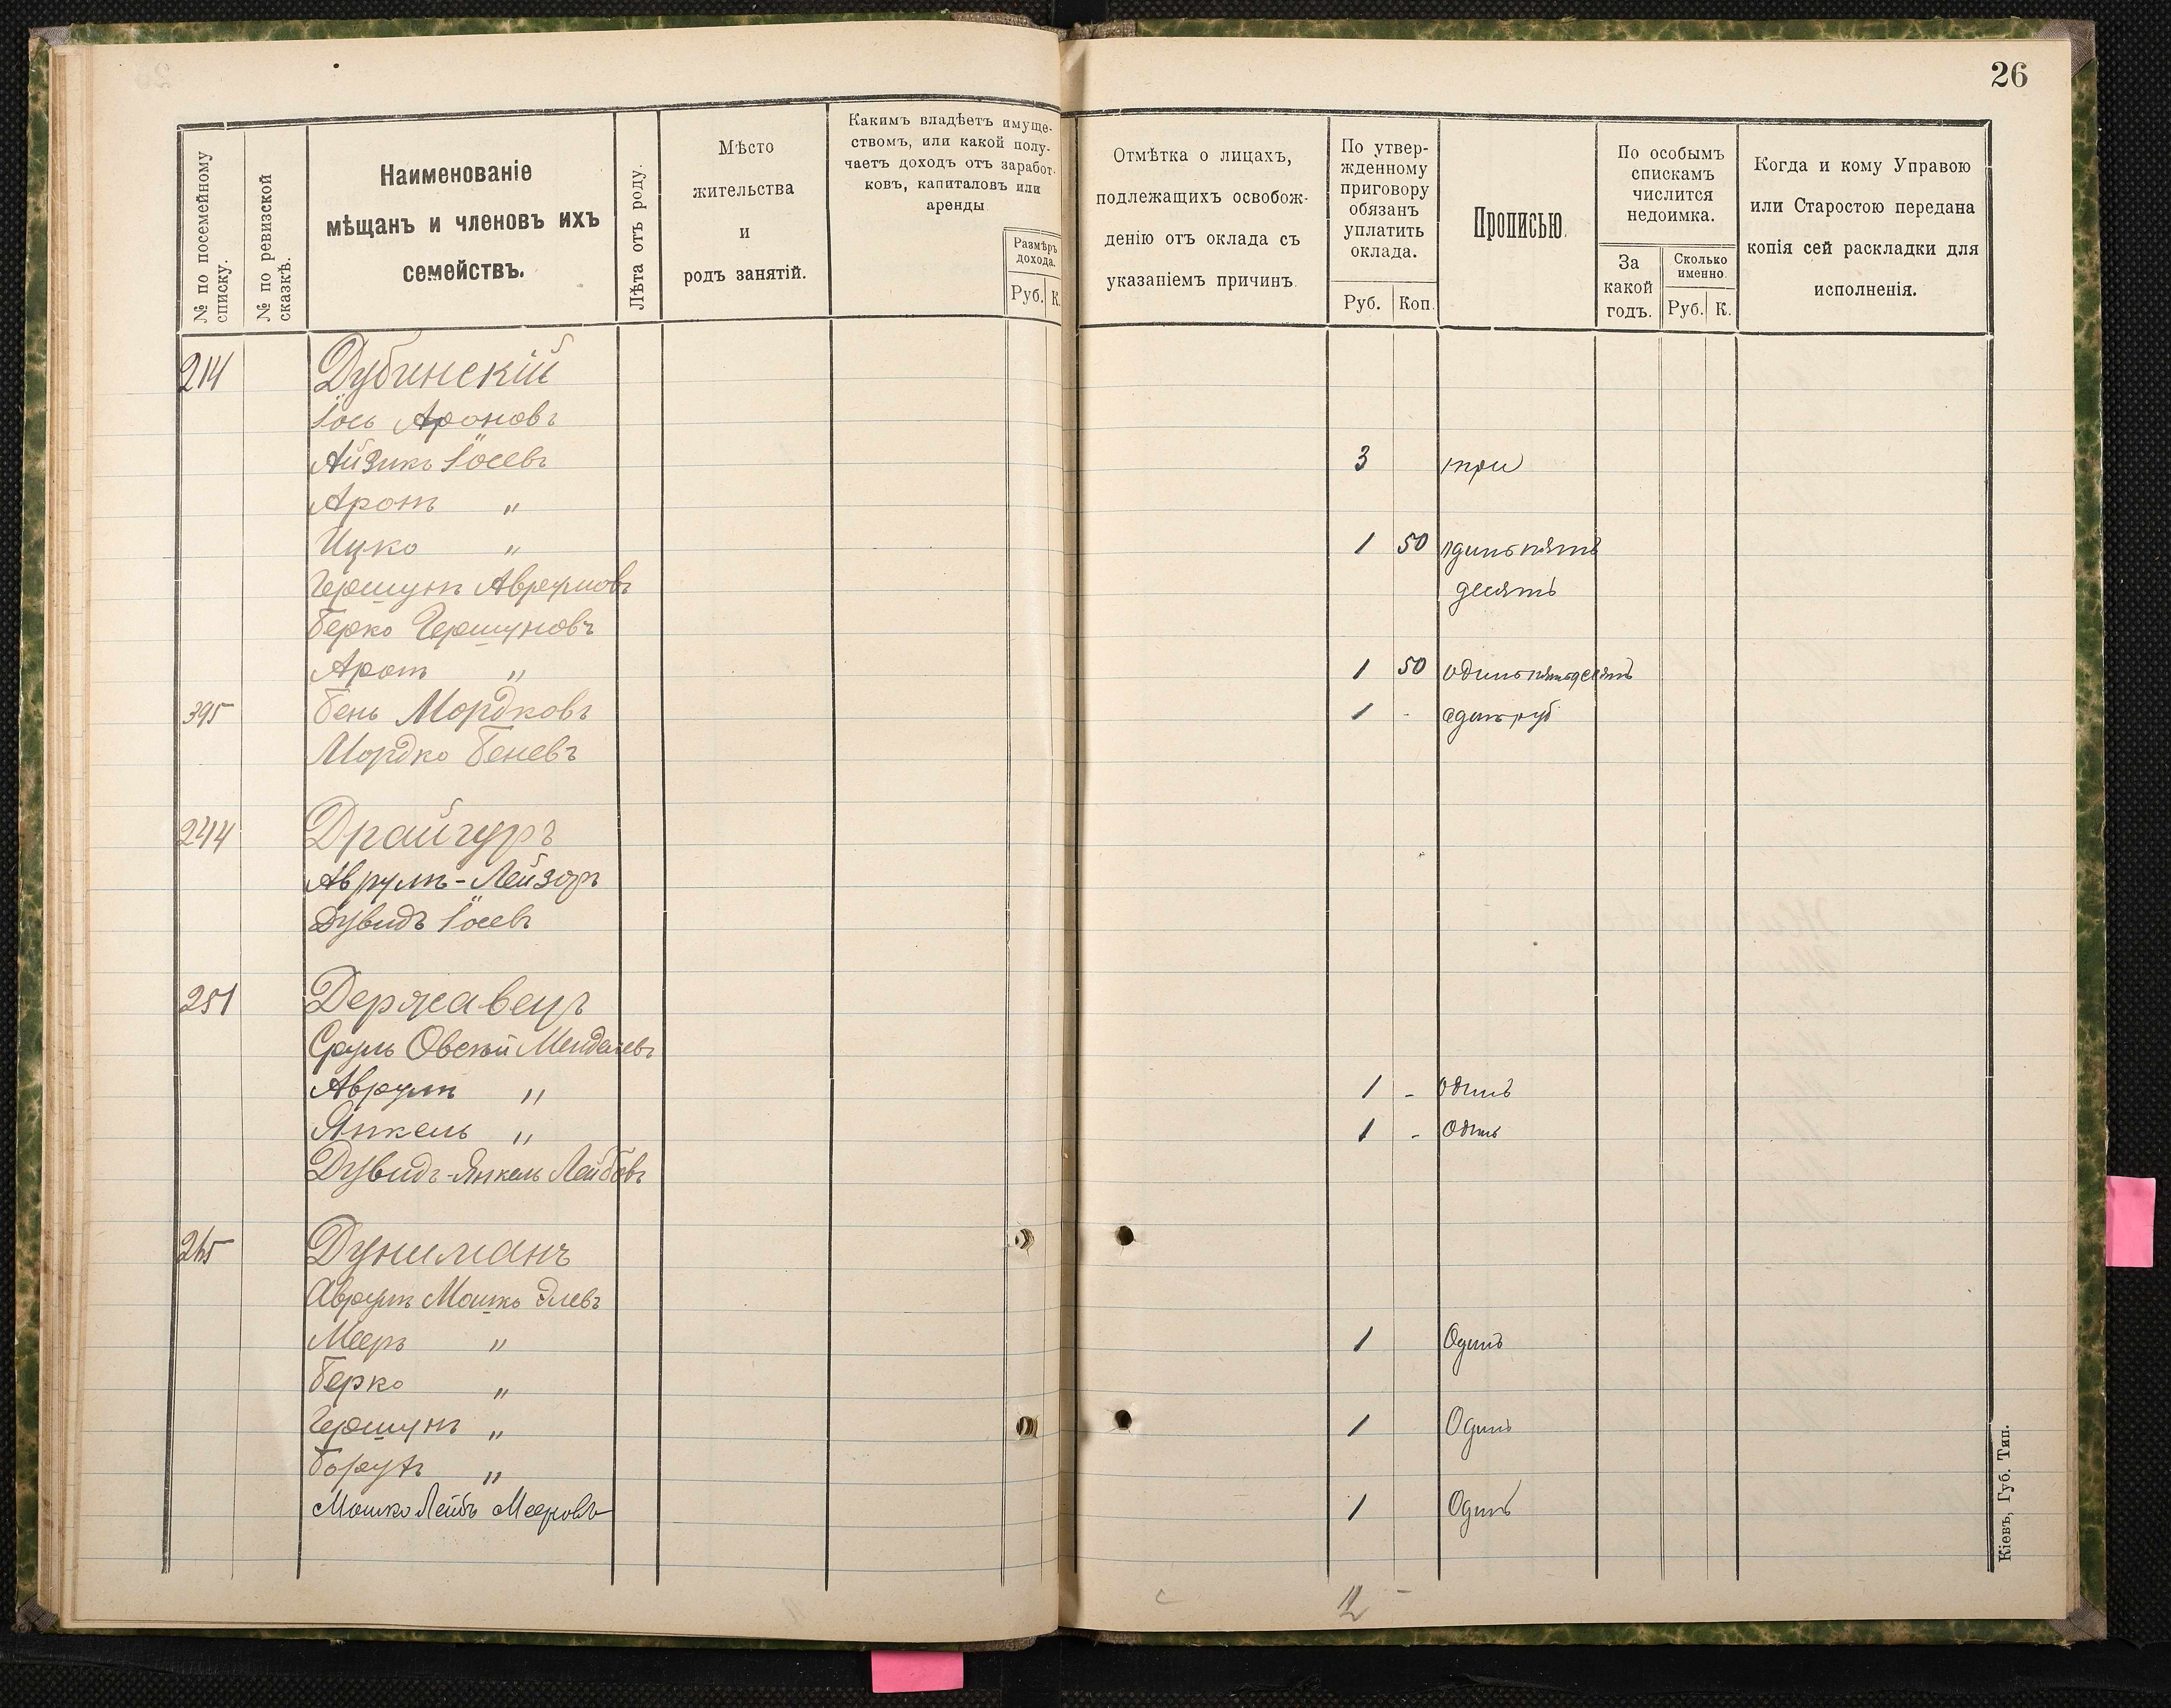 26
№ по посемейному
списку.
№ по ревизской
сказкѣ.
Наименованіе
мѣщанъ и членовъ ихъ
семействъ.
Лѣта отъ роду.
Мѣсто
жительства
и
родъ занятій.
Какимъ владѣетъ имуще-
ствомъ, или какой полу-
чаетъ доходъ отъ заработ-
ковъ, капиталовъ или
аренды
Размѣръ
дохода.
Руб. К.
Отмѣтка о лицахъ,
подлежащихъ освобож-
денію отъ оклада съ
указаніемъ причинъ
По утвер-
жденному
приговору
обязанъ
уплатить
оклада.
Руб. Коп.
Прописью.
По особымъ
спискамъ
числится
недоимка.
За
какой
годъ.
Сколько
именно
Руб. К.
Когда и кому Управою
или Старостою передана
копія сей раскладки для
исполненія.
214 Дубинскій
Іось Ароновъ
Айзикъ Іосевъ 3 три
Аронъ "
Ицко " 1 50 одинъ пять
Гершунъ Аврумовъ десять
Берко Гершуновъ
Аронъ " 1 50 одинъ пятьдесятъ
395 Бень Мордковъ 1 - одинъ руб
Мордко Беневъ
244 Драйгуръ
Аврумъ-Лейзоръ
Дувидъ Іосевъ
251 Державецъ
Сруль Овсей Менделевъ
Аврумъ " 1 - одинъ
Янкель " 1 - Одинъ
Дувидъ-Янкель Лейбовъ
265 Дуниманъ
Аврумъ Мошко Элевъ
Мееръ " 1 Одинъ
Берко "
Гершунъ " 1 Одинъ
Борухъ "
Мошко Лейбъ Мееровъ 1 Одинъ
12 -
Кіевъ, Губ. Тип.